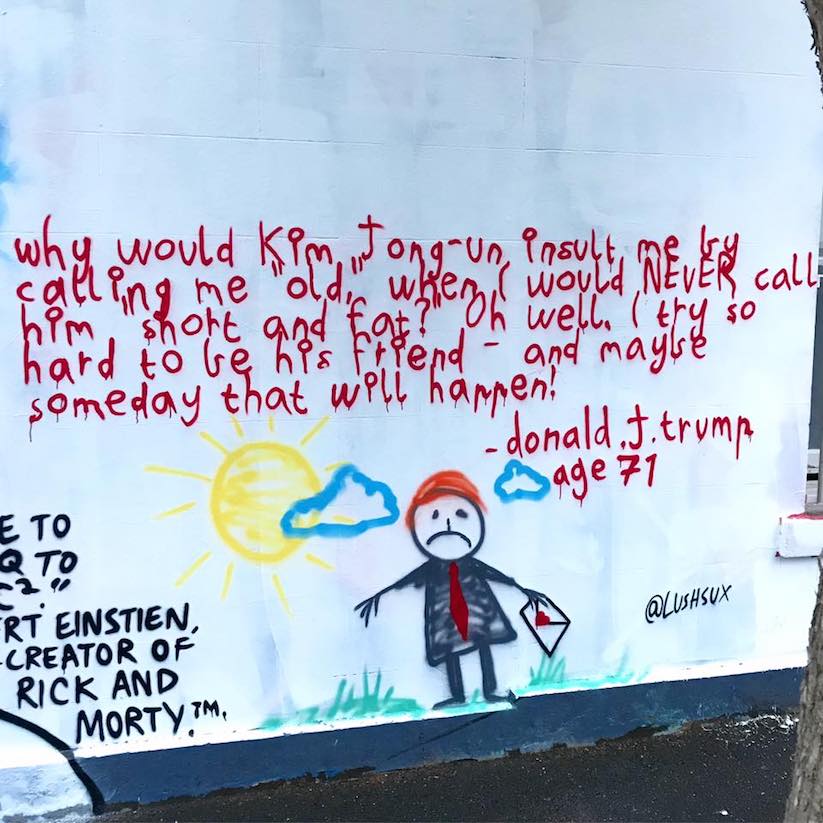 why would Kim Jong-un insult me by
calling me "old," when I would NEVER call
him "short and fat?" Oh well, I try so
hard to be his friend - and maybe
someday that will happen!
-donald.J.trump
age 71
E TO
Q TO
C²."
RT EINSTIEN,
CREATOR OF
RICK AND
MORTY.™.
@LUSHSUX